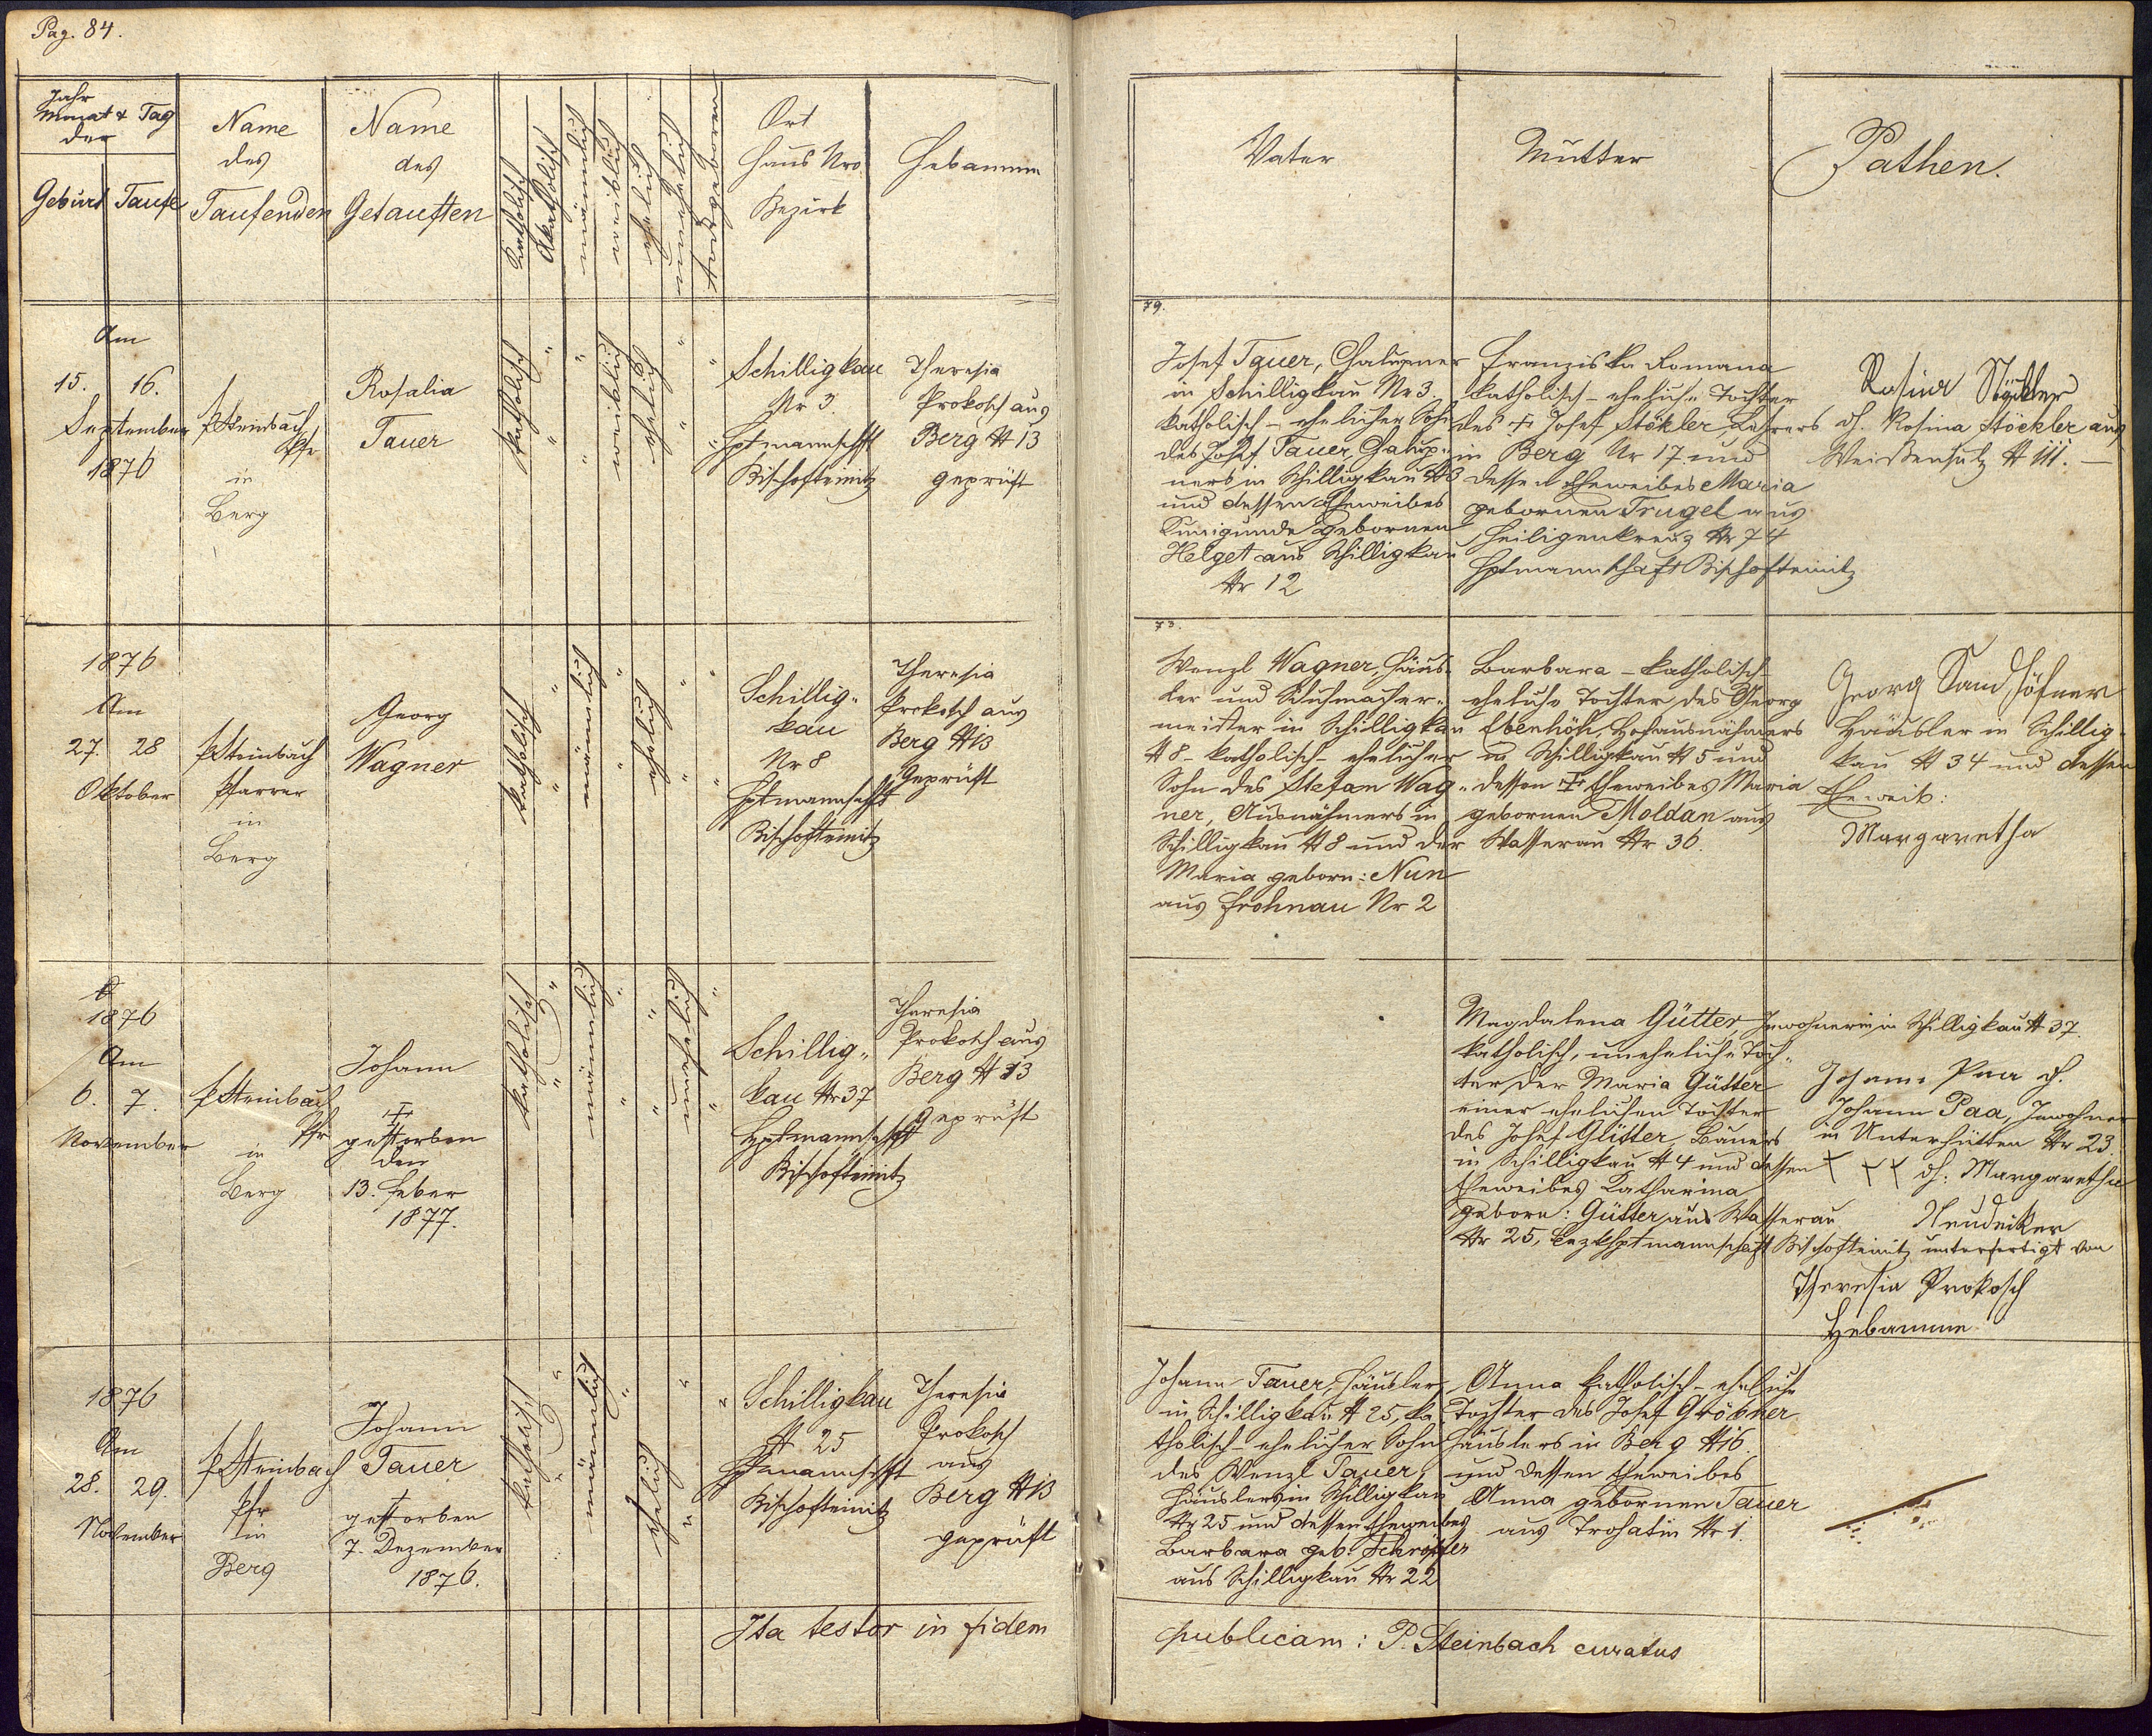 Pag. 84.
Jahr
Monat & Tag
der
Geburt Taufe
Name
des
Taufenden
Name
des
Getauften
katholisch
Akatholisch
männlich
weiblich
ehelich
unehelich
todtgeboren
Ort
Haus Nro
Bezirk
Hebamme
Vater
Mutter
Pathen.
Am
15. 16.
September
1876
P Steinbach
Pfr
in
Berg
Rosalia
Tauer
katholisch
weiblich
ehelich
Schilligkau
Nr 3.
Hptmannschft
Bischofteinitz
Theresia
Prokosch aus
Berg N 13
geprüft
79.
Josef Tauer, Chalupner
in Schilligkau Nr 3.
katholisch - ehelicher Sohn
des Josef Tauer, Chalup-
ners in Schilligkau N 3
und dessen Eheweibes
Kunigunde gebornen
Helget aus Schilligkau
Nr 12
Franziska Romana
katholisch - eheliche Tochter
des ‡ Josef Stökler, Lehrers
in Berg Nr 17. und
dessen Eheweibes Maria
gebornen Trugel aus
Heiligenkreuz Nr 74
Hptmannschaft Bischofteinitz
Rosina Stöckler
dh. Rosina Stöckler aus
Weißensulz N 111. —
1876
Am
27. 28
Oktober
P Steinbach
Pfarrer
in
Berg
Georg
Wagner
katholisch
männlich
ehelich
Schillig-
kau
Nr 8
Hptmannschft
Bischofteinitz
Theresia
Prokosch aus
Berg N 13
Geprüft
73.
Wenzl Wagner, Häus-
ler und Schuhmacher-
meister in Schilligkau
N 8 - katholisch - ehelicher
Sohn des Stefan Wag-
ner, Ausnähmers in
Schilligkau N 8 und der
Maria geborn: Nun
aus Frohnau Nr 2
Barbara - katholisch -
eheliche Tochter des Georg
Ebenhöh, Hofausnähmers
in Schilligkau N 5 und
dessen ‡ Eheweibes Maria
gebornen Moldan aus
Wasserau Nr 36.
Georg Sandhöfner
Häusler in Schillig-
kau N 34 und dessen
Eheweib:
Margaretha
1876
Am
6. 7.
November
P Steinbach
Pfr
in
Berg
Johann
‡
gestorben
den
13. Feber
1877.
katholisch
männlich
unehelich
Schillig-
kau Nr 37
Hptmannschft
Bischofteinitz
Theresia
Prokosch aus
Berg N 13
Geprüft
Magdalena Gütter, Inwohnerin in Schilligkau N 37.
katholisch, uneheliche Toch-
ter der Maria Gütter
einer ehelichen Tochter
des Josef Gütter, Bauers
in Schilligkau N 4 und dessen
Eheweibes Katharina
geborn: Gütter aus Wasserau
Nr 25, Bezkhptmannschaft Bischofteinitz
Johann Paa dh.
Johann Paa, Inwohner
in Unterhütten Nr 23.
XXX dh: Margaretha
Neudecker
unterfertigt von
Theresia Prokosch
Hebamme
1876
Am
28. 29.
November
P Steinbach
Pfr
in
Berg
Johann
Tauer
†
gestorben
7. Dezember
1876.
katholisch
männlich
ehelich
Schilligkau
N 25
Hptmannschft
Bischofteinitz
Theresia
Prokosch
aus
Berg N 13
geprüft
Johann Tauer, Häusler
in Schilligkau N 25, ka-
tholisch - ehelicher Sohn
des Wenzl Tauer,
Häuslers in Schilligkau
Nr 25 und dessen Eheweibes
Barbara geb: Schröpfer
aus Schilligkau Nr 22
Anna katholisch - eheliche
Tochter des Josef Gröbner
Häuslers in Berg N 16.
und dessen Eheweibes
Anna gebornen Tauer
aus Trohatin Nr 1.
Ita testor in fidem
publicam: P. Steinbach curatus